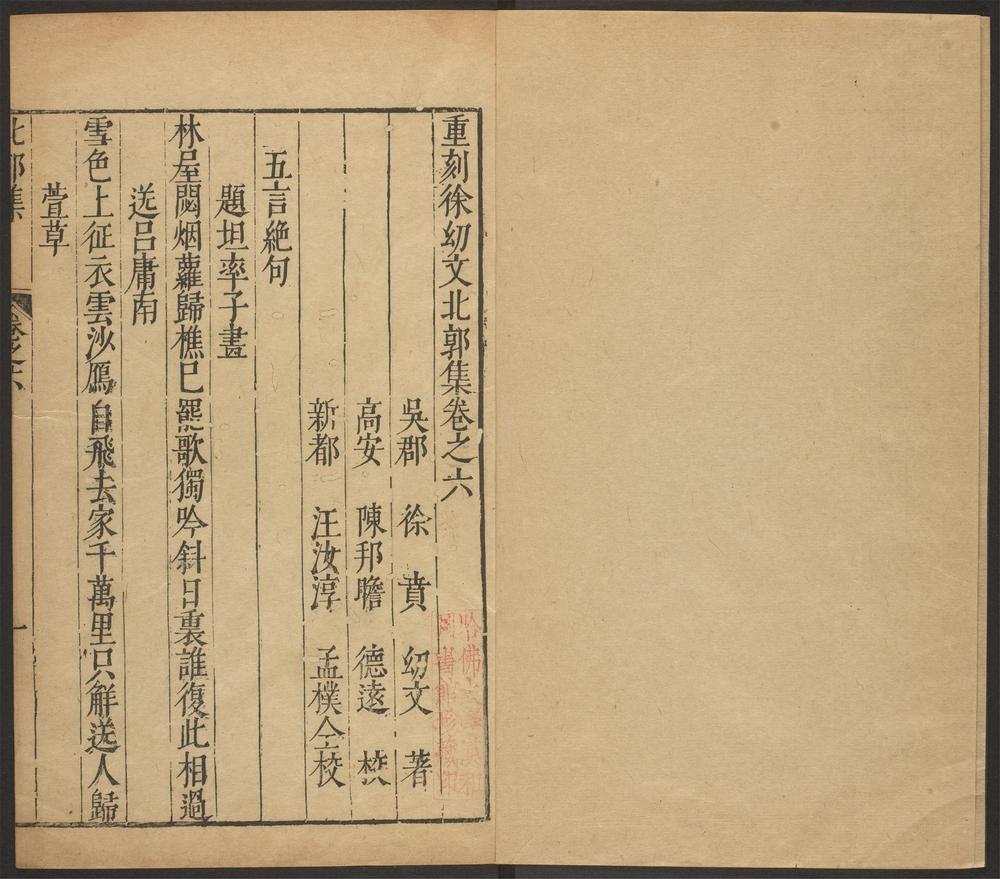 重刻徐幼文北郭集卷之六
吳郡　徐　賁　幼文　著
高安　陳邦瞻　德遠　校
新都　汪汝淳　孟樸仝校
五言絕句
題坦率子畫
林屋閟烟蘿歸樵已罷歌獨吟斜日裏誰復此相過
送呂庸南
雪色上征衣雲沙鴈自飛去家千萬里只解送人歸
萱草
北郭集
卷之六
一